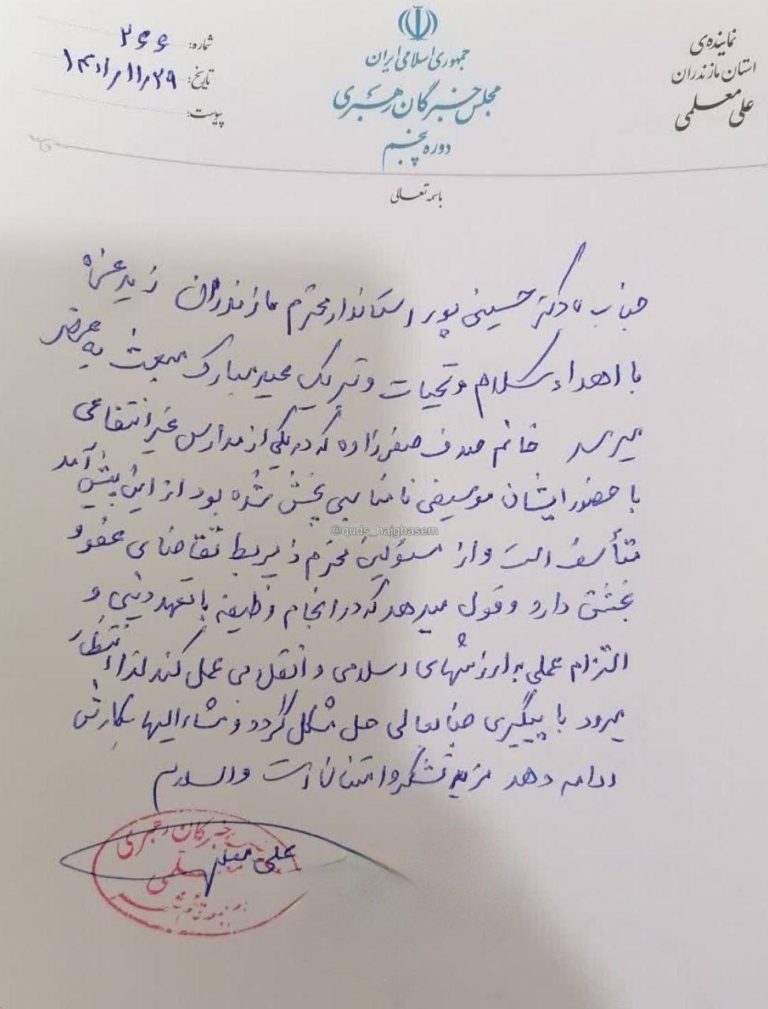 نماینده‌ی
استان مازندران
علی معلمی
جمهوری اسلامی ایران
مجلس خبرگان رهبری
دوره پنجم
شماره: ۲۶۶
تاریخ: ۱۴۰۱/۱۱/۲۹
پیوست:
باسمه تعالی
جناب آقای دکتر حسینی پور استاندار محترم مازندران زید عزه
با اهداء سلام و تحیات و تبریک عید مبارک مبعث به عرض
میرسد خانم صدف صفرزاده که در یکی از مدارس غیر انتفاعی
با حضور ایشان موسیقی نامناسبی پخش شده بود از این پیش آمد
متأسف است و از مسؤلین محترم ذیربط تقاضای عفو و
بخشش دارد و قول میدهد که در انجام وظیفه با تعهد دینی و
التزام عملی به ارزشهای اسلامی و انقلابی عمل کند لذا انتظار
میرود با پیگیری جنابعالی حل مشکل گردد و مشارالیها بکارش
ادامه دهد مزید تشکر و امتنان است والسلام
علی معلمی
خبرگان رهبری
@quds_hajghasem